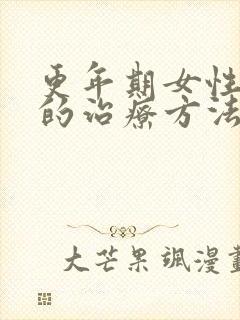 更年期女性
的治疗方法
大芒果飒漫画